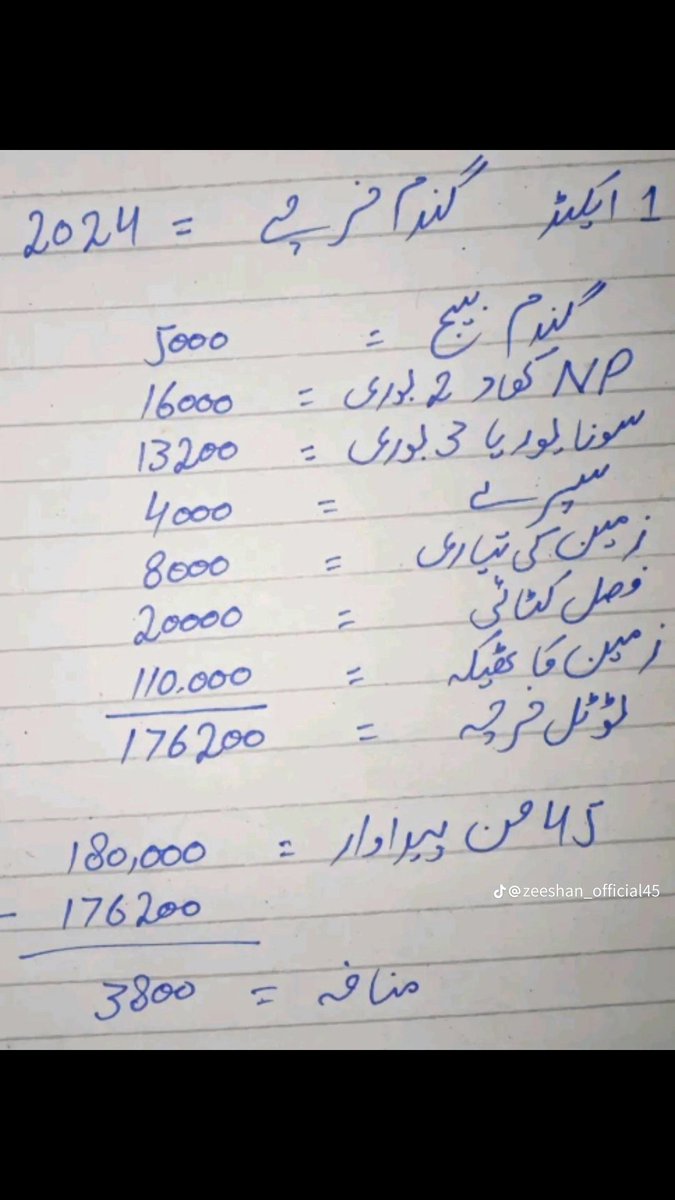 1 ایکڑ گندم خرچے = 2024
گندم بیج = 5000
NP کھاد 2 بوری = 16000
سونا یوریا 3 بوری = 13200
سپرے = 4000
زمین کی تیاری = 8000
فصل کٹائی = 20000
زمین کا ٹھیکہ = 110.000
ٹوٹل خرچہ = 176200
45 من پیداوار = 180,000
@zeeshan_official45
- 176200
منافہ = 3800